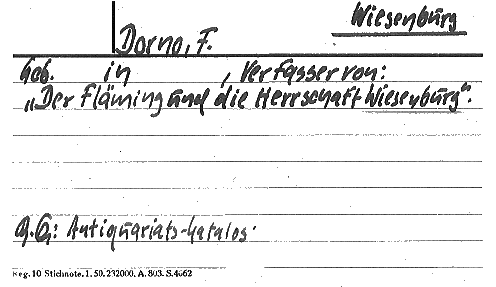 Wiesenburg
Dorno, F.
Geb. in , Verfasser von:
„Der Fläming und die Herrschaft Wiesenburg".
Q.: Antiquariats-Katalog.
Reg. 10 Stichnote. 1. 50. 232000. A. 803. S. 4662